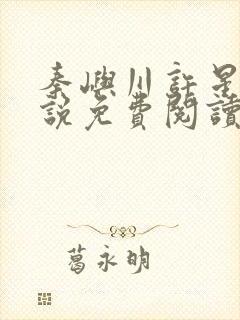 秦嶼川許星
說免費閱讀
葛永明